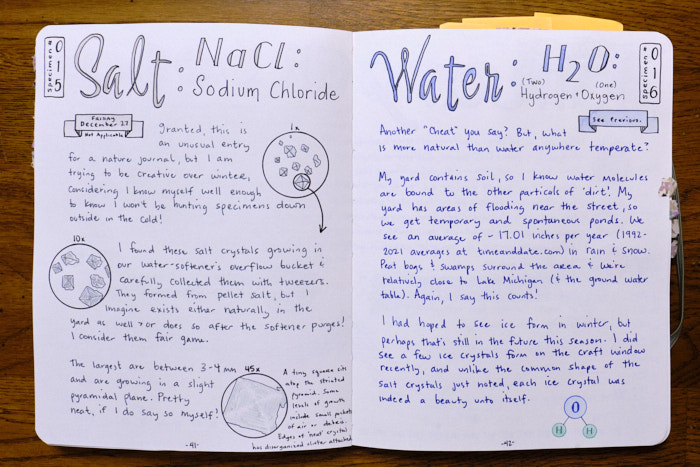 specimen#
015
Salt: NaCl:
Sodium Chloride
Friday
December 23
Not Applicable
Granted, this is
an unusual entry
for a nature journal, but I am
trying to be creative over winter,
considering I know myself well enough
to know I won't be hunting specimens down
outside in the cold!
1x
10x
I found these salt crystals growing in
our water-softener's overflow bucket &
carefully collected them with tweezers.
They formed from pellet salt, but I
imagine exists either naturally in the
yard as well > or does so after the softener purges!
I consider them fair game.
The largest are between 3-4mm
and are growing in a slight
pyramidal plane. Pretty
neat, if I do say so myself!
45x
A tiny square sits
atop the striated
pyramid. Some
levels of growth
include small pockets
of air or debris.
Edges of 'neat' crystal
has disorganized cluster attached.
-41-
Water: H2O:
(Two) (One)
Hydrogen + Oxygen
specimen#
016
See Previous.
Another "Cheat" you say? But, what
is more natural than water anywhere temperate?
My yard contains soil, so I know water molecules
are bound to the other particals of 'dirt'. My
yard has areas of flooding near the street, so
we get temporary and spontaneous ponds. We
see an average of ~ 17.01 inches per year (1992-
2021 averages at timeanddate.com) in rain & snow.
Peat bogs & swamps surround the area & we're
relatively close to Lake Michigan (& the ground water
table). Again, I say this counts!
I had hoped to see ice form in winter, but
perhaps that's still in the future this season. I did
see a few ice crystals form on the craft window
recently, and unlike the common shape of the
salt crystals just noted, each ice crystal was
indeed a beauty unto itself.
O
H H
-42-